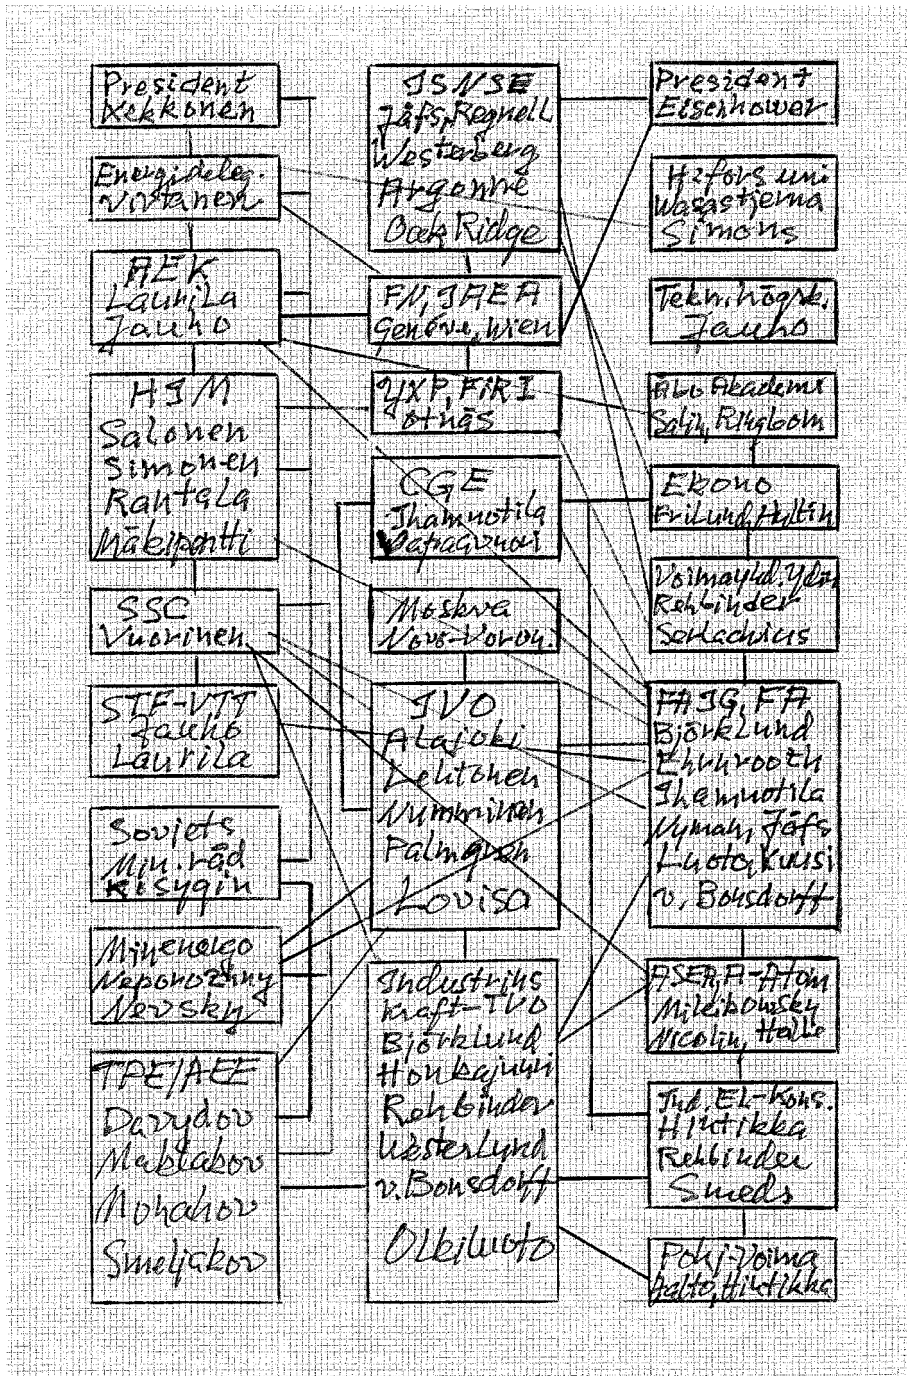 President
Kekkonen
Energideleg.
Virtanen
AEK
Laurila
Jauho
HIM
Salonen
Simonen
Rantala
Mäkipentti
SSC
Vuorinen
STF-VTT
Jauho
Laurila
Sovjets
Min. råd
Kosygin
Minenergo
Neporozhny
Nevsky
TPE/AEE
Davydov
Maklakov
Monahov
Smeljakov
ISNSE
Jäfs, Regnell
Westerberg
Argonne
Oak Ridge
FN, IAEA
Genéve, Wien
YXP, FiR I
Otnäs
CGE
Ihamuotila
Vapaavuori
Moskva
Novo-Voron.
IVO
Alajoki
Lehtonen
Numminen
Palmgren
Lovisa
Industrins
Kraft-TVO
Björklund
Honkajuuri
Rehbinder
Westerlund
v. Bonsdorff
Olkiluoto
President
Eisenhower
H:fors uni.
Wasastjerna
Simons
Tekn. högsk.
Jauho
Åbo Akademi
Salin, Ringbom
Ekono
Frilund, Hultin
Voimayhd. Ydin
Rehbinder
Serlachius
FAIG, FA
Björklund
Ehrnrooth
Ihamuotila
Nyman, Jäfs
Luoto, Kuusi
v. Bonsdorff
ASEA, A-Atom
Mileikowsky
Nicolin, Halle
Ind. El-Kons.
Hintikka
Rehbinder
Smeds
Pohj-Voima
Aalto, Hintikka